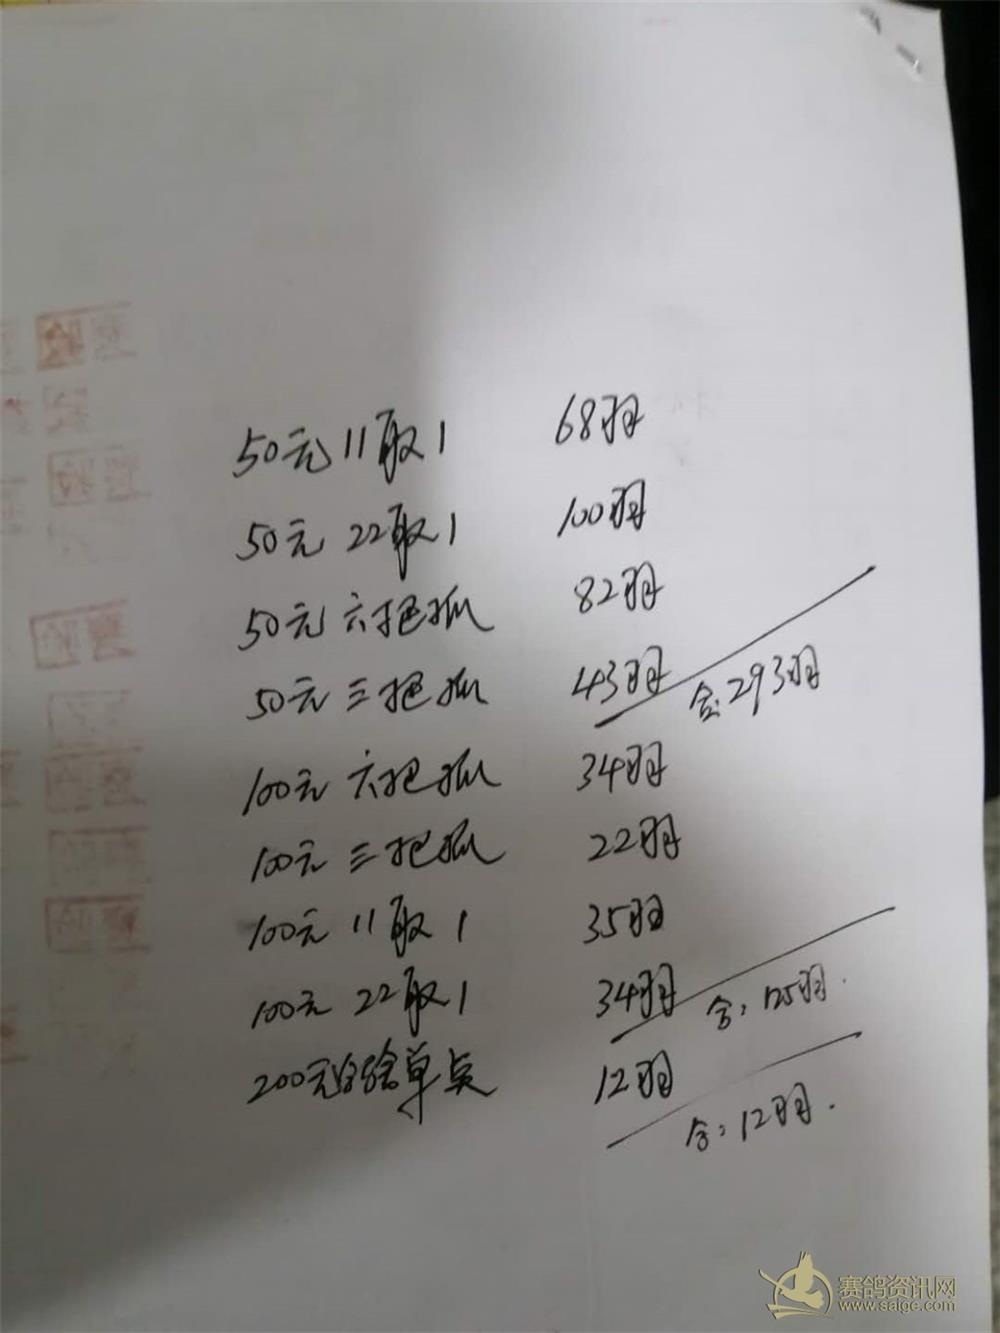 50元 11取1 68羽
50元 22取1 100羽
50元 六把抓 82羽
50元 三把抓 43羽
合:293羽
100元 六把抓 34羽
100元 三把抓 22羽
100元 11取1 35羽
100元 22取1 34羽
合:125羽.
200元 单点 12羽
合:12羽.
赛鸽资讯网
www.saige.com